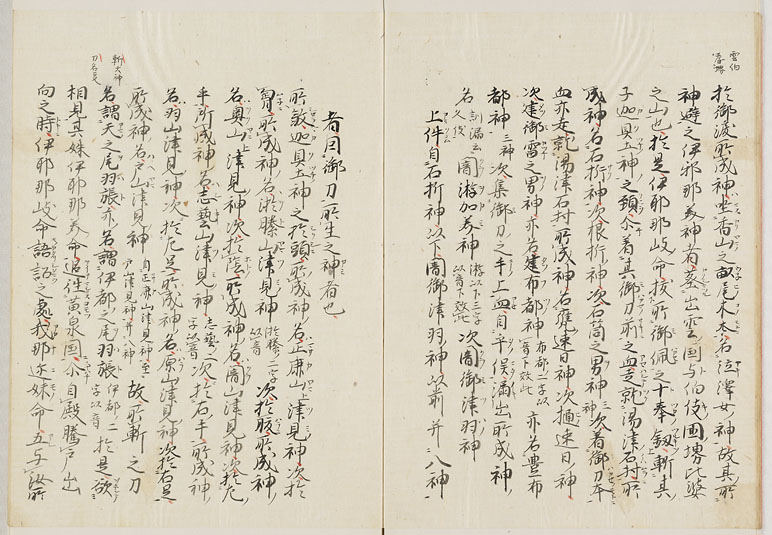 雲伯
於御涙所成神坐香山之畝尾木本名泣澤女神故其所
神避之伊邪那美神者葬出雲国与伯伎国堺比婆
之山也於是伊耶那岐命抜所御佩之十拳釼斬其
子迦具土神之頸尓着其御刀前之血走就湯津石村所
成神名石折神次根折神次石筒之男神三神次着御刀本
血亦走就湯津石村所成神名甕速日神次樋速日神
次建御雷之男神亦名建布都神布都二字以音下效此亦名豊布
都神三神次集御刀之手上血自手俣漏出所成神
名訓漏云久伎闇淤加美神淤以下三字以音下效此次闇御津羽神
上件自石折神以下闇御津羽神以前并八神
者因御刀所生之神者也
所殺迦具土神之於頭所成神名正鹿山津見神次於
胸所成神名淤縢山津見神淤縢二字以音次於腹所成神
名奥山津見神次於陰所成神名闇山津見神次於左
手所成神名志藝山津見神志藝二字以音次於右手所成神
名羽山津見神次於左足所成神名原山津見神次於右足
所成神名戸山津見神自正鹿山津見神至戸山津見神并八神故所斬之刀
斬大神
刀名
名謂天之尾羽張亦名謂伊都之尾羽張伊都二字以音於是欲
相見其妹伊耶那美命追往黄泉国尓自殿縢戸出
向之時伊耶那岐命語詔之愛我那迩妹命吾与汝所